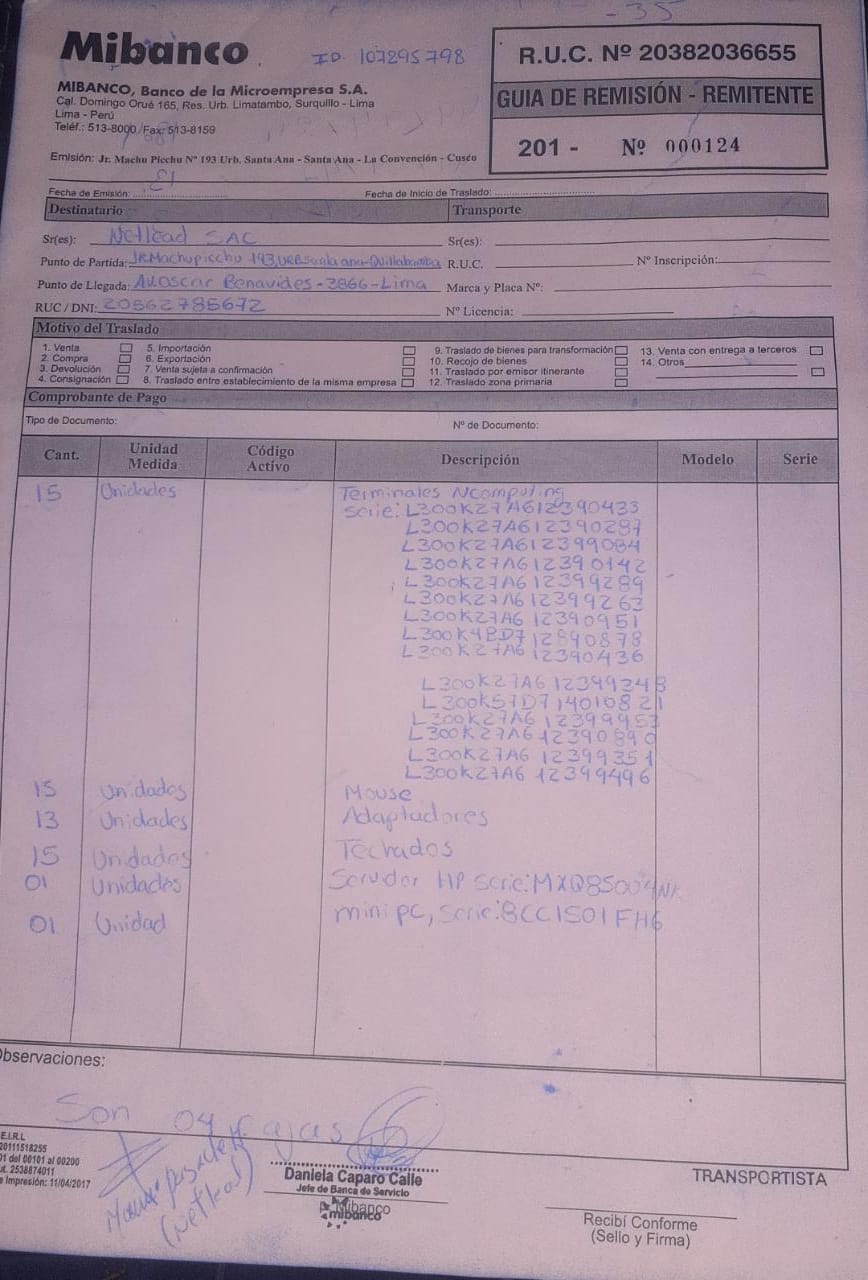 - 35
Mibanco
ID. 107295798
R.U.C. Nº 20382036655
MIBANCO, Banco de la Microempresa S.A.
Cal. Domingo Orué 165, Res. Urb. Limatambo, Surquillo - Lima
Lima - Perú
Teléf.: 513-8000 / Fax: 513-8159
GUIA DE REMISIÓN - REMITENTE
201 - Nº 000124
Emisión: Jr. Machu Picchu Nº 193 Urb. Santa Ana - Santa Ana - La Convención - Cusco
Fecha de Emisión:
Fecha de Inicio de Traslado:
Destinatario
Transporte
Sr(es): Netlead SAC
Sr(es):
Punto de Partida: JR.Machupicchu 193,URB santa ana-Quillabamba
R.U.C.
Nº Inscripción:
Punto de Llegada: Av.oscar Benavides-3866-Lima
Marca y Placa Nº:
RUC / DNI: 20562785672
Nº Licencia:
Motivo del Traslado
1. Venta
5. Importación
9. Traslado de bienes para transformación
13. Venta con entrega a terceros
2. Compra
6. Exportación
10. Recojo de bienes
14. Otros
3. Devolución
7. Venta sujeta a confirmación
11. Traslado por emisor itinerante
4. Consignación
8. Traslado entre establecimiento de la misma empresa
12. Traslado zona primaria
Comprobante de Pago
Tipo de Documento:
Nº de Documento:
Cant.
Unidad Medida
Código Activo
Descripción
Modelo
Serie
15 Unidades Terminales Ncomputing
serie: L300K27A612390433
L300K27A612390287
L300K27A612399084
L300K27A612390142
L300K27A612399289
L300K27A612399263
L300K27A612390951
L300K4BD712890878
L300K27A612390436
L300K27A612399348
L300K57D714010821
L300K27A612399953
L300K27A612390890
L300K27A612399351
L300K27A612399496
15 Unidades Mouse
13 Unidades Adaptadores
15 Unidades Teclados
01 Unidades Servidor HP serie:
01 Unidad mini pc, serie:8CC1501FH6
Observaciones:
Son 04 cajas
E.I.R.L
20111518255
01 del 00101 al 00200
ut. 2538874011
e Impresión: 11/04/2017
(Netlead)
Daniela Caparo Calle
Jefe de Banca de Servicio
Mibanco
mibanco
TRANSPORTISTA
Recibí Conforme
(Sello y Firma)